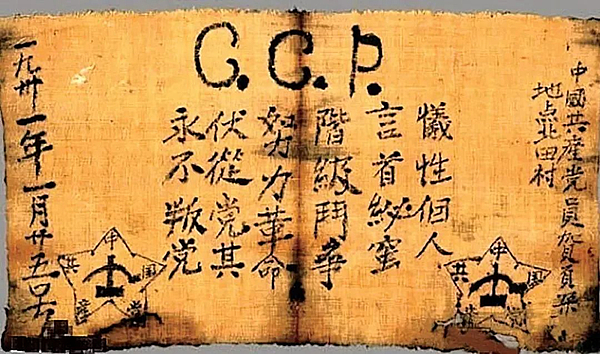 C.C.P.
中國共産党員賀頁朵
地点北田村
犧性個人
言首秘蜜
階級鬥爭
努力革命
伏從党其
永不叛党
一九卅一年一月廿五号
中国共
中国共産党